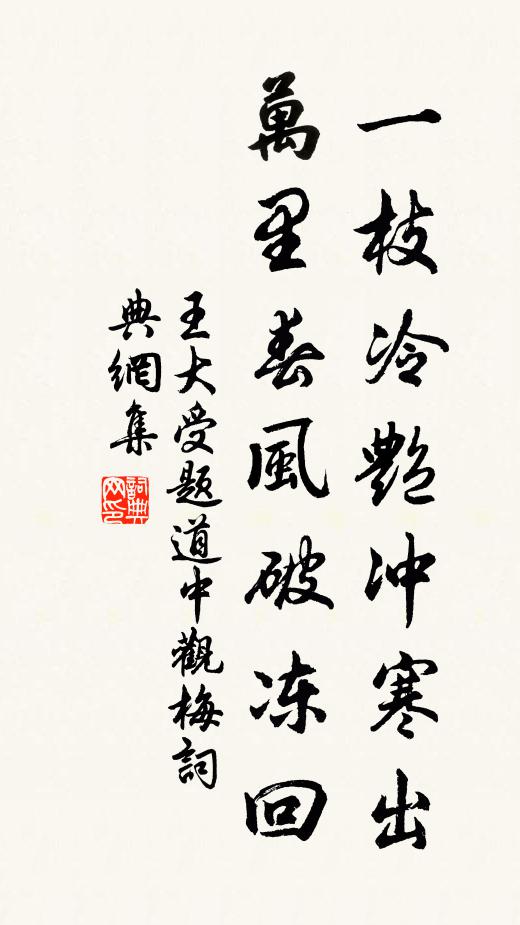 一枝冷艷冲寒出
萬里春風破冻回
王大受題道中觀梅詞
典網集
詞典网印